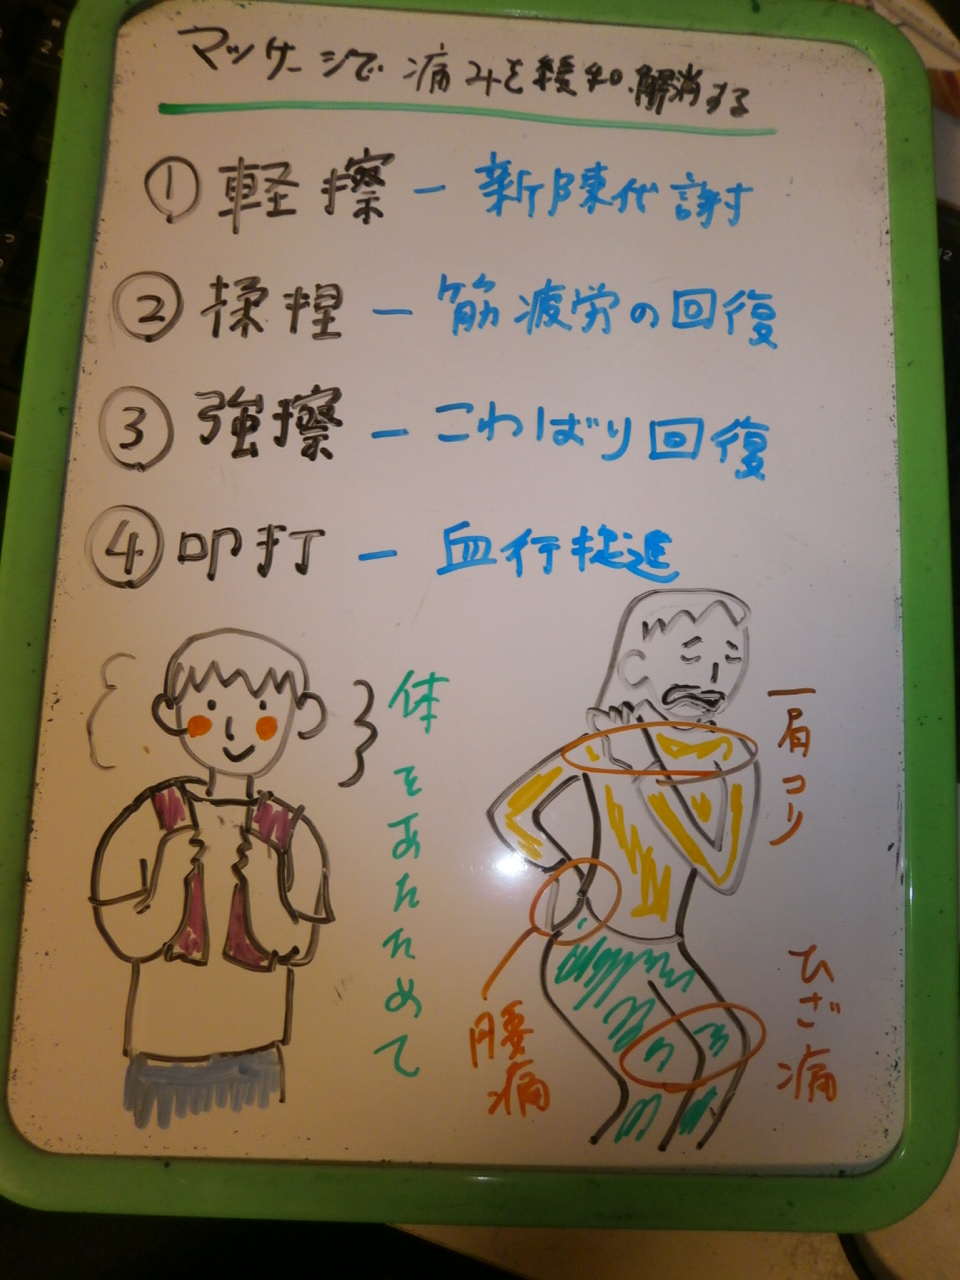 マッサージで痛みを緩和.解消する
① 軽擦 - 新陳代謝
② 揉捏 - 筋疲労の回復
③ 強擦 - こわばり回復
④ 叩打 - 血行促進
体をあたためて
肩コリ
腰痛
ひざ痛